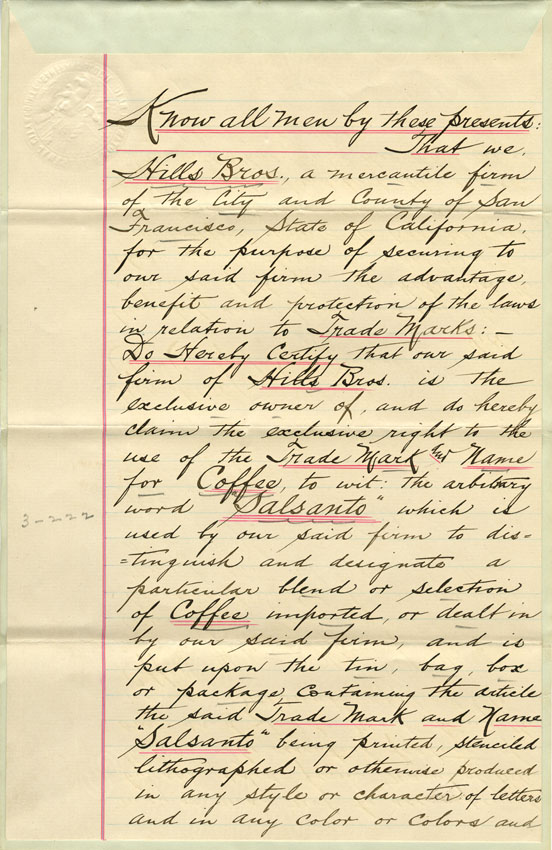 Know all men by these presents:
That we,
Hills Bros., a mercantile firm
of the City and County of San
Francisco, State of California,
for the purpose of securing to
our said firm the advantage,
benefit and protection of the laws
in relation to Trade Marks: —
Do Hereby Certify that our said
firm of Hills Bros. is the
exclusive owner of, and do hereby
claim the exclusive right to the
use of the Trade Mark and Name
for Coffee, to wit: the arbitrary
word "Salsanto" which is
used by our said firm to dis=
=tinguish and designate a
particular blend or selection
of Coffee imported, or dealt in
by our said firm, and is
put upon the tin, bag, box
or package, containing the article
the said Trade Mark and Name
"Salsanto" being printed, stenciled
lithographed or otherwise produced
in any style or character of letters
and in any color or colors and
3-222